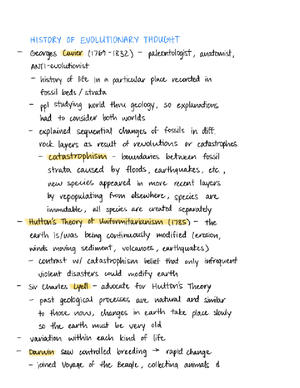 HISTORY OF EVOLUTIONARY THOUGHT
- Georges Cuvier (1769-1832) - paleontologist, anatomist,
ANTI-evolutionist
- history of life in a particular place recorded in
fossil beds / strata
- ppl studying world thru geology, so explanations
had to consider both worlds
- explained sequential changes of fossils in diff.
rock layers as result of revolutions or catastrophes
- catastrophism - boundaries between fossil
strata caused by floods, earthquakes, etc.,
new species appeared in more recent layers
by repopulating from elsewhere, species are
immutable, all species are created separately
- Hutton's Theory of Uniformitarianism (1785) - the
earth is/was being continuously modified (erosion,
winds moving sediment, volcanoes, earthquakes)
- contrast w/ catastrophism belief that only infrequent
violent disasters could modify earth
- Sir Charles Lyell - advocate for Hutton's Theory
- past geological processes are natural and similar
to those now, changes in earth take place slowly
so the earth must be very old
- variation within each kind of life
- Darwin saw controlled breeding → rapid change
- joined Voyage of the Beagle, collecting animals &